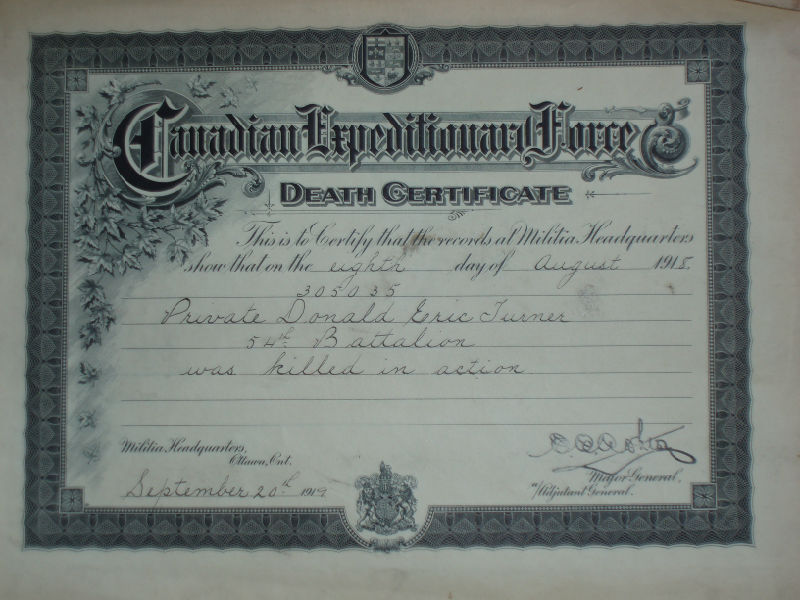 Canadian Expeditionary Force
DEATH CERTIFICATE
This is to Certify that the records at Militia Headquarters
show that on the eighth day of August 1918.
305035
Private Donald Eric Turner
54th Battalion
was killed in action
Militia Headquarters,
Ottawa, Ont.
September 20th 1919
Major General,
Adjutant General.